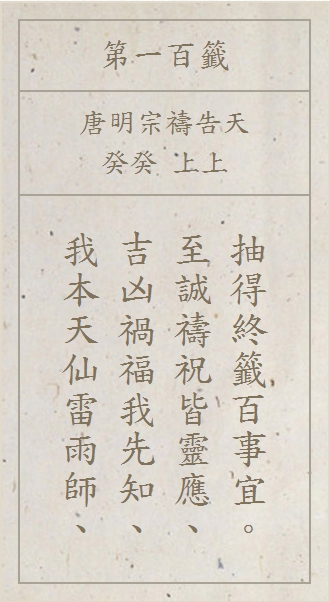 第一百籤
唐明宗禱告天
癸癸 上上
我本天仙雷雨師、
吉凶禍福我先知、
至誠禱祝皆靈應、
抽得終籤百事宜。